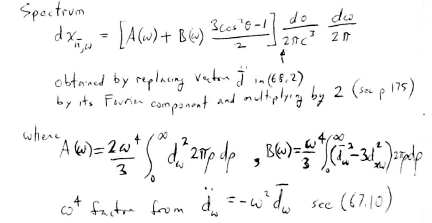 Spectrum
dχ_{n̄,ω} = [A(ω) + B(ω) (3cos²θ-1)/2] do/(2πc³) dω/(2π)
obtained by replacing vector d̈ in (68,2)
by its Fourier component and multiplying by 2 (see p 175)
where
A(ω) = (2ω⁴/3) ∫₀^∞ d_ω² 2πρ dρ , B(ω) = (ω⁴/3) ∫₀^∞ (d̄_ω² - 3d_{xω}²) 2πρdρ
ω⁴ factor from d̈_ω = -ω² d̄_ω see (67.10)